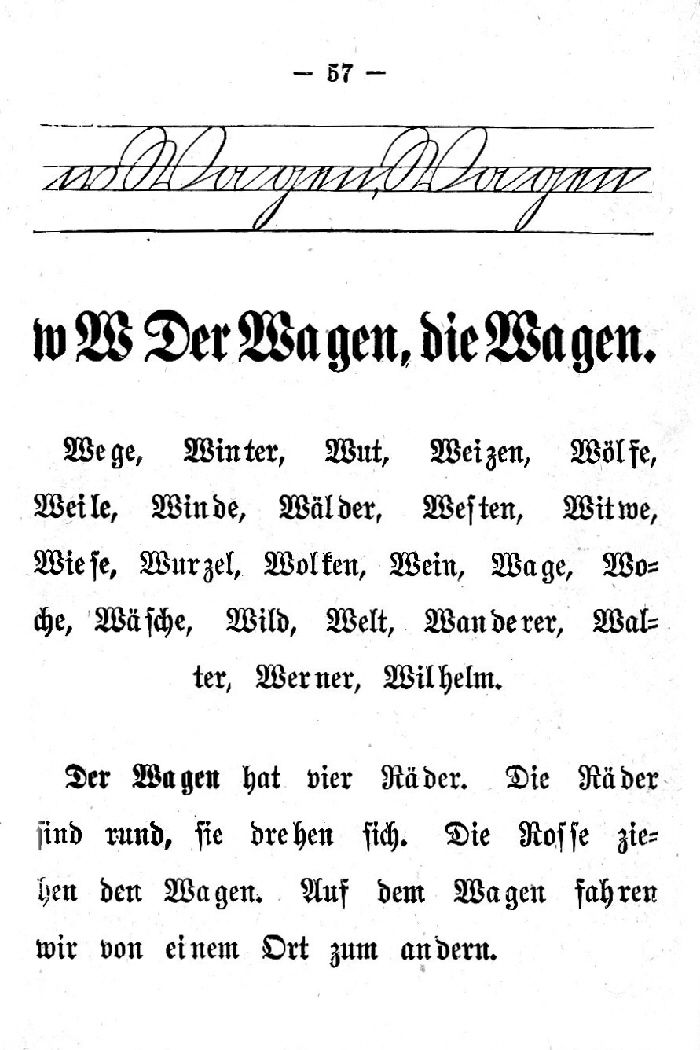 — 57 —
w Wagen, Wagen
w W Der Wagen, die Wagen.
Wege, Winter, Wut, Weizen, Wölfe,
Weile, Winde, Wälder, Westen, Witwe,
Wiese, Wurzel, Wolken, Wein, Wage, Wo=
che, Wäsche, Wild, Welt, Wanderer, Wal=
ter, Werner, Wilhelm.
Der Wagen hat vier Räder. Die Räder
sind rund, sie drehen sich. Die Rosse zie=
hen den Wagen. Auf dem Wagen fahren
wir von einem Ort zum andern.